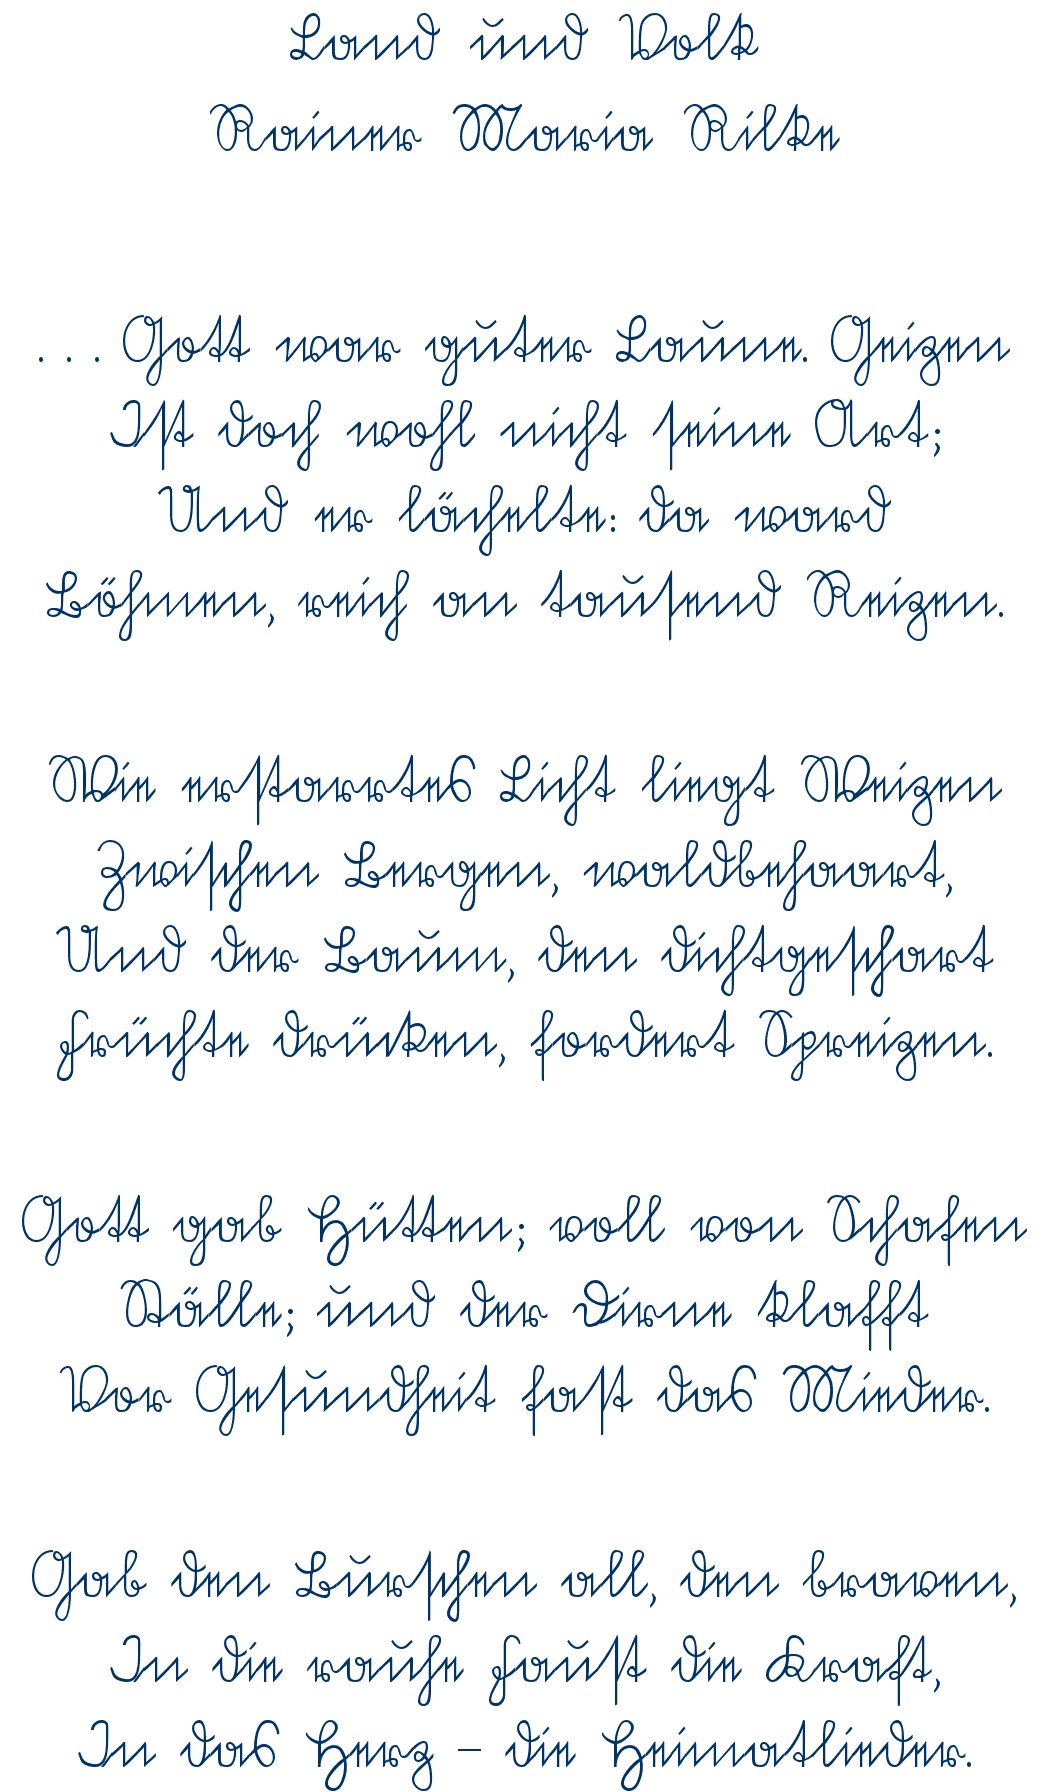 Land und Volk
Rainer Maria Rilke
. . . Gott war guter Laune. Geizen
Ist doch wohl nicht seine Art;
Und er lächelte: da ward
Böhmen, reich an tausend Reizen.
Wie erstarrtes Licht liegt Weizen
Zwischen Bergen, waldbehaart,
Und der Baum, den dichtgeschart
Früchte drücken, fordert Spreizen.
Gott gab Hütten; voll von Schafen
Ställe; und der Dirne klafft
Vor Gesundheit fast das Mieder.
Gab den Burschen all, den braven,
In die rauhe Faust die Kraft,
In das Herz – die Heimatlieder.